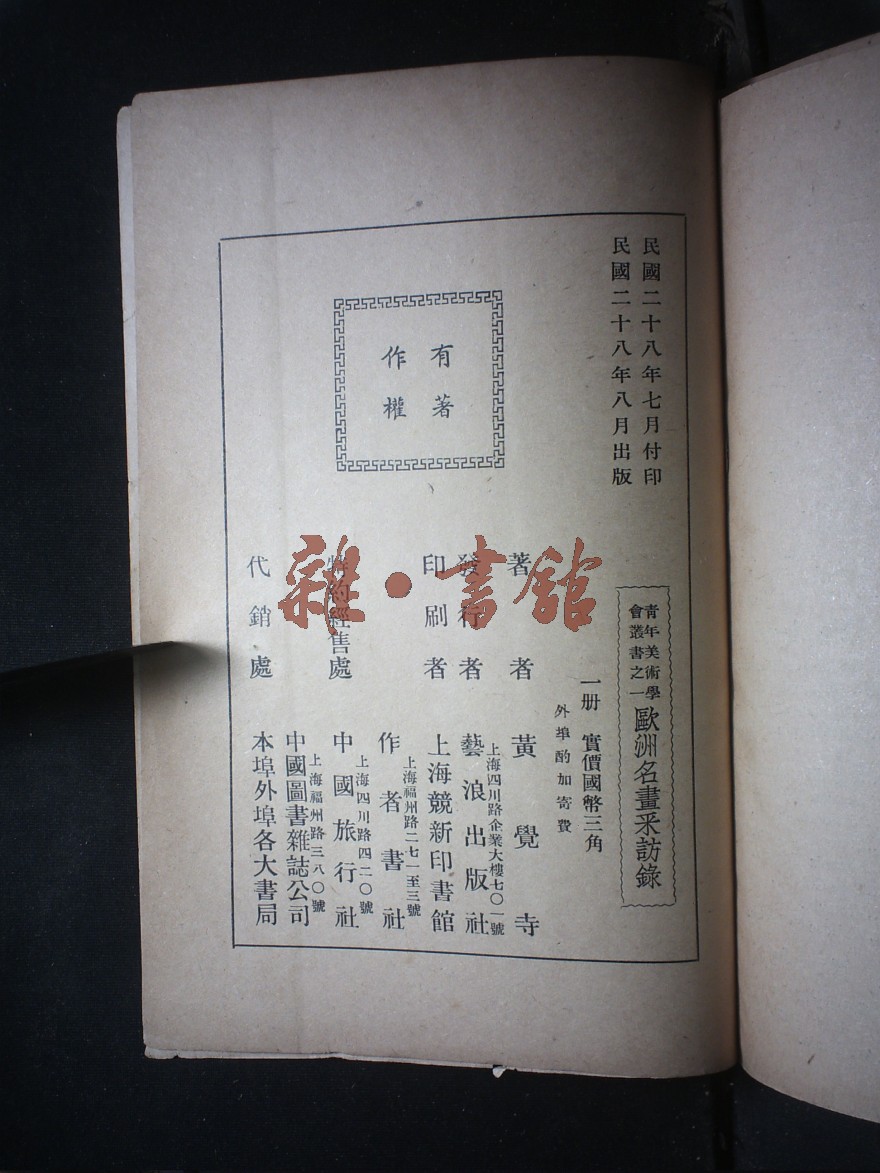 民國二十八年七月付印
民國二十八年八月出版
有著
作權
青年美術學
會叢書之一
歐洲名畫采訪錄
一册 實價國幣三角
外埠酌加寄費
著者 黃覺寺
發行者 藝浪出版社
上海四川路企業大樓七〇一號
印刷者 上海競新印書館
特約經售處
作者書社
上海福州路二七一至三號
中國旅行社
上海四川路四二〇號
中國圖書雜誌公司
上海福州路三八〇號
代銷處 本埠外埠各大書局
雜·書館